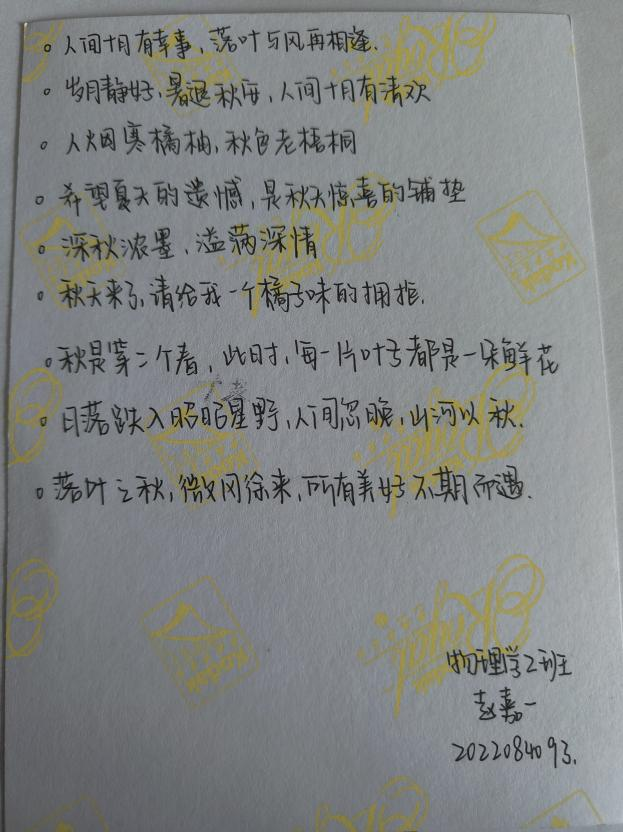 。人间十月有幸事，落叶与风再相逢.
。岁月静好，暑退秋至，人间十月有清欢
。人烟寒橘柚，秋色老梧桐
。希望夏天的遗憾，是秋天惊喜的铺垫
。深秋浓墨，溢满深情
。秋天来了，请给我一个橘子味的拥抱.
。秋是第二个春，此时，每一片叶子都是一朵鲜花
。日落跌入昭昭星野，人间忽晚，山河以秋.
。落叶之秋，微风徐来，所有美好不期而遇.
物理学2班
赵嘉一
2022084093.
Kodak
Royal
Kodak
Royal
Kodak
Royal